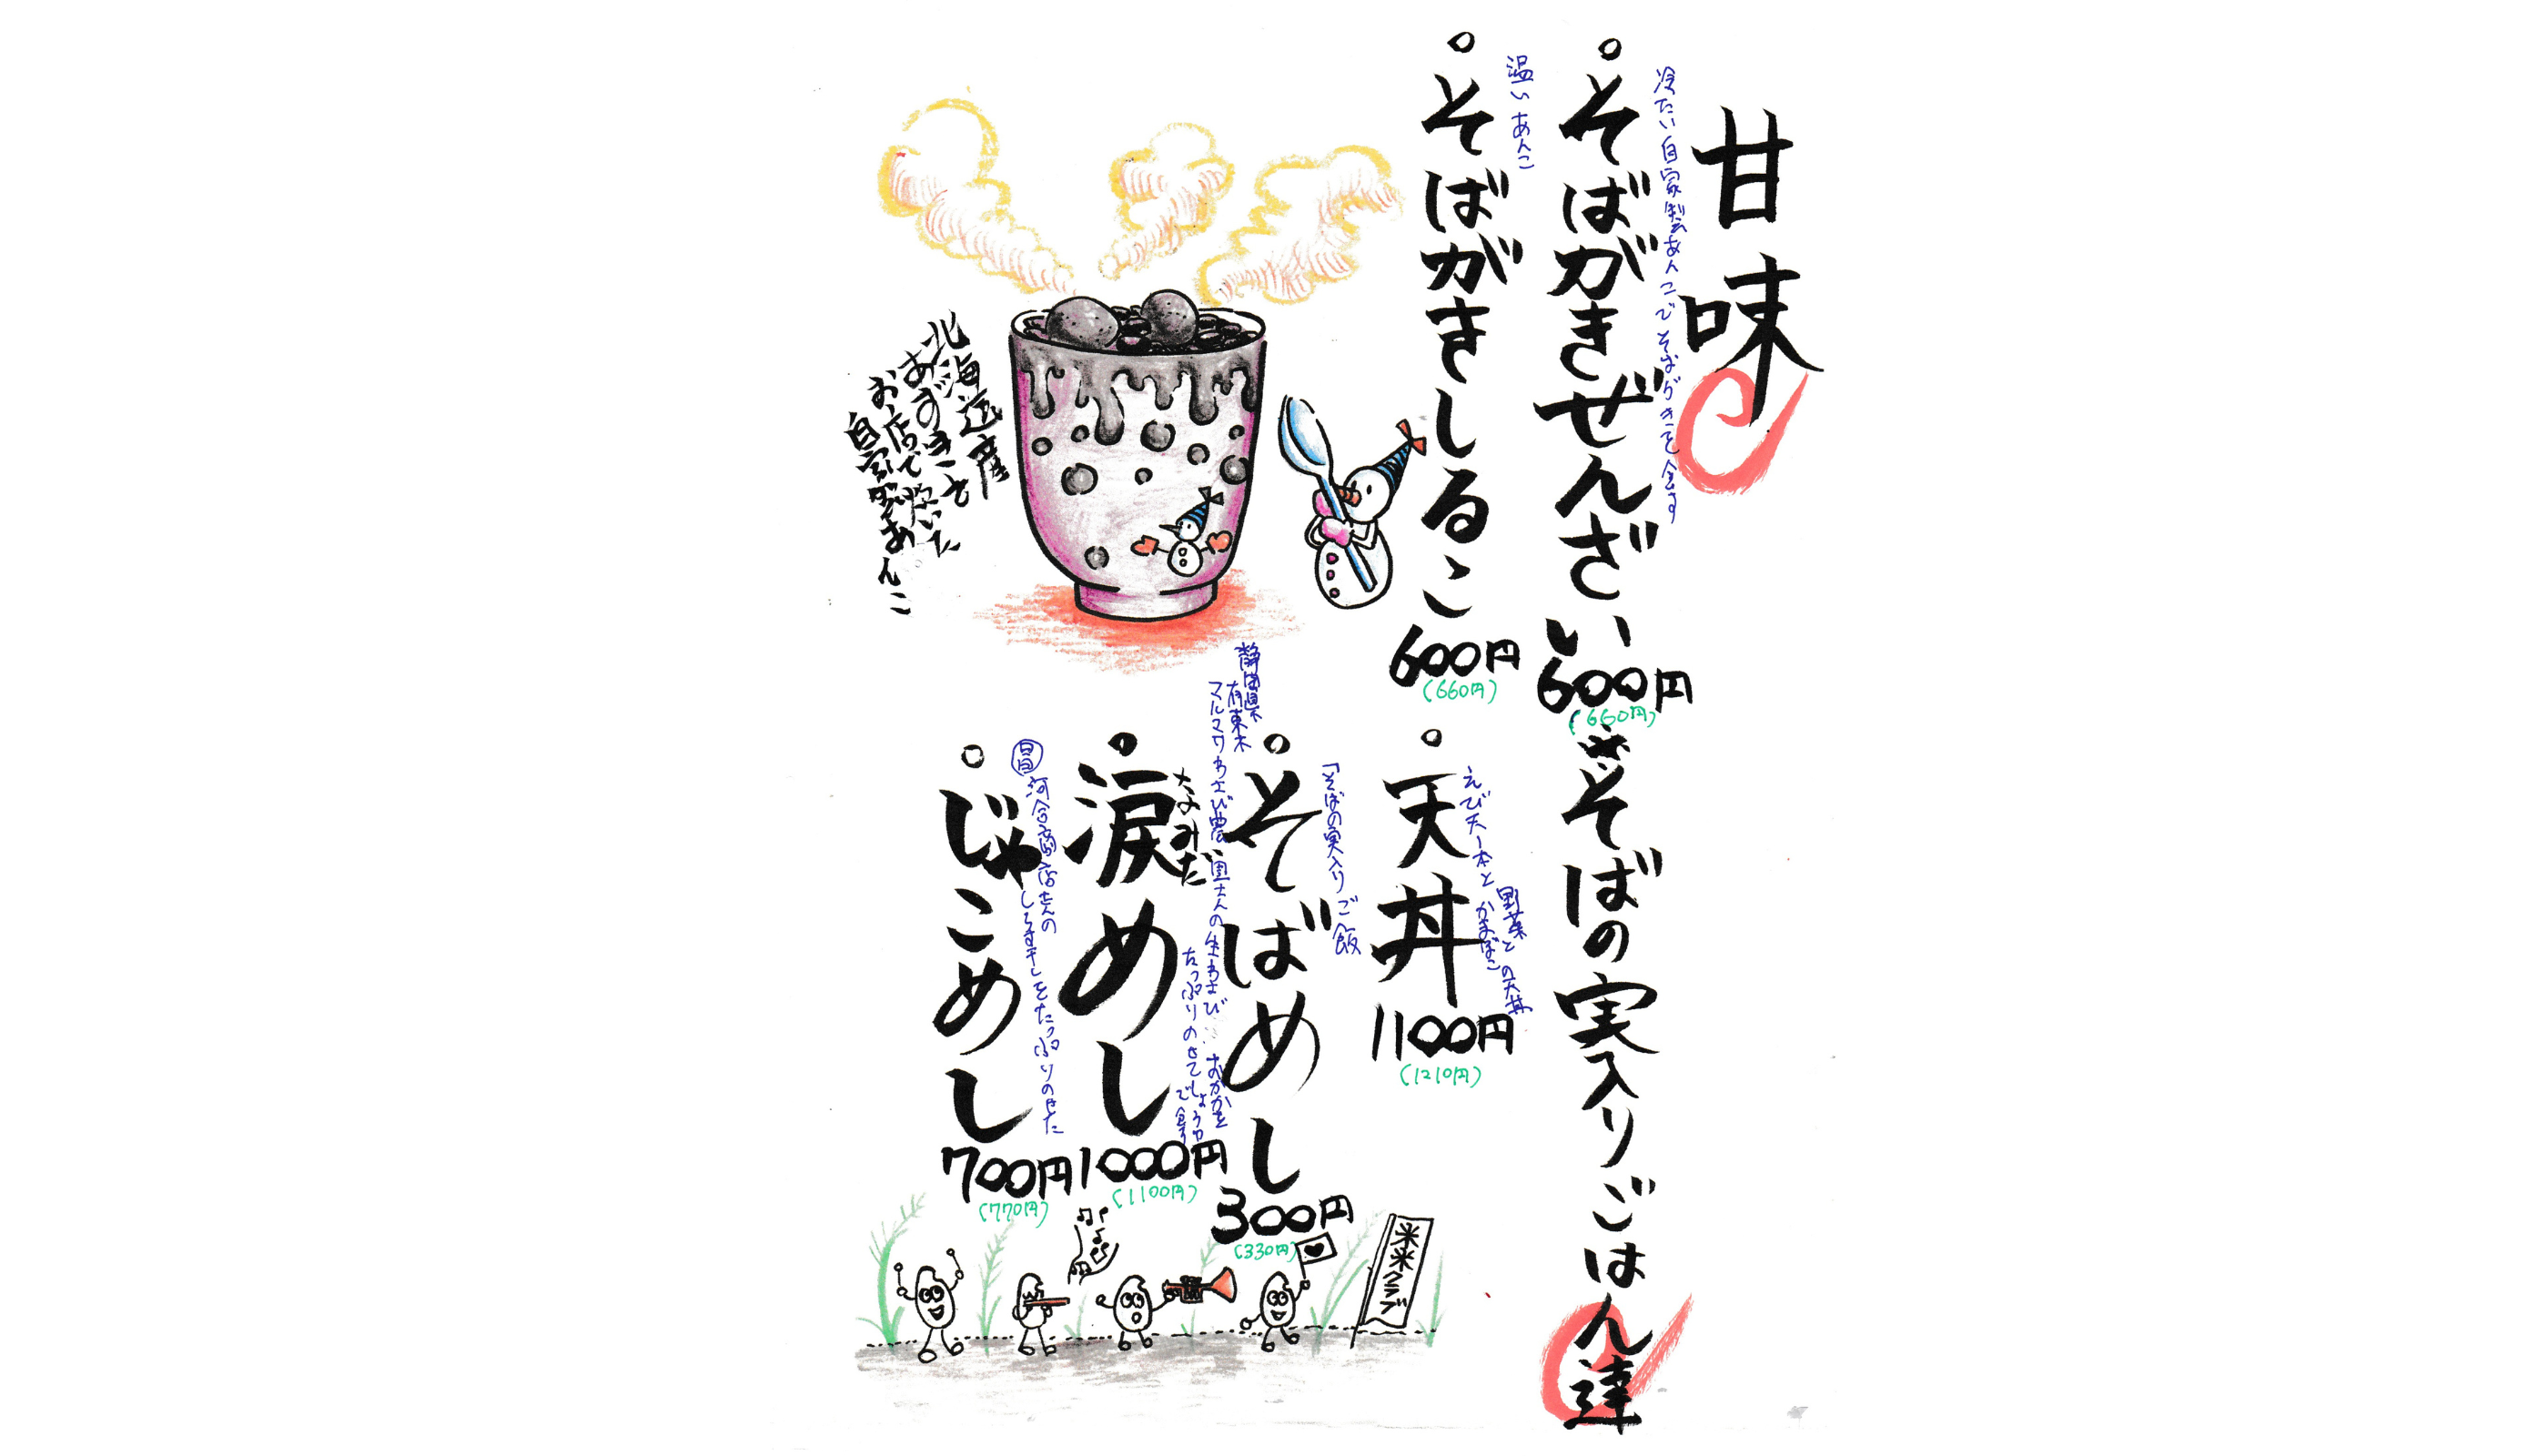 甘味
冷たい自家製あんこでそばがきを食す
・そばがきぜんざい 600円
(660円)
温いあんこ
・そばがきしるこ 600円
(660円)
北海道産
あずきを
お店で炊いた
自家製あんこ
※そばの実入りごはん達
えび天一本とかまぼこ
野菜との天丼
・天丼 1100円
(1210円)
「そばの実入り」ご飯
・そばめし 300円
(330円)
静岡県
有東木
マルマワさび農園さんの生わさび
おかかを
たっぷりのせてしょうゆ
で食す
なみだ
・涙めし 1000円
(1100円)
河合商店さんの
しらす干しをたっぷりのせた
・じゃこめし 700円
(770円)
米米クラブ